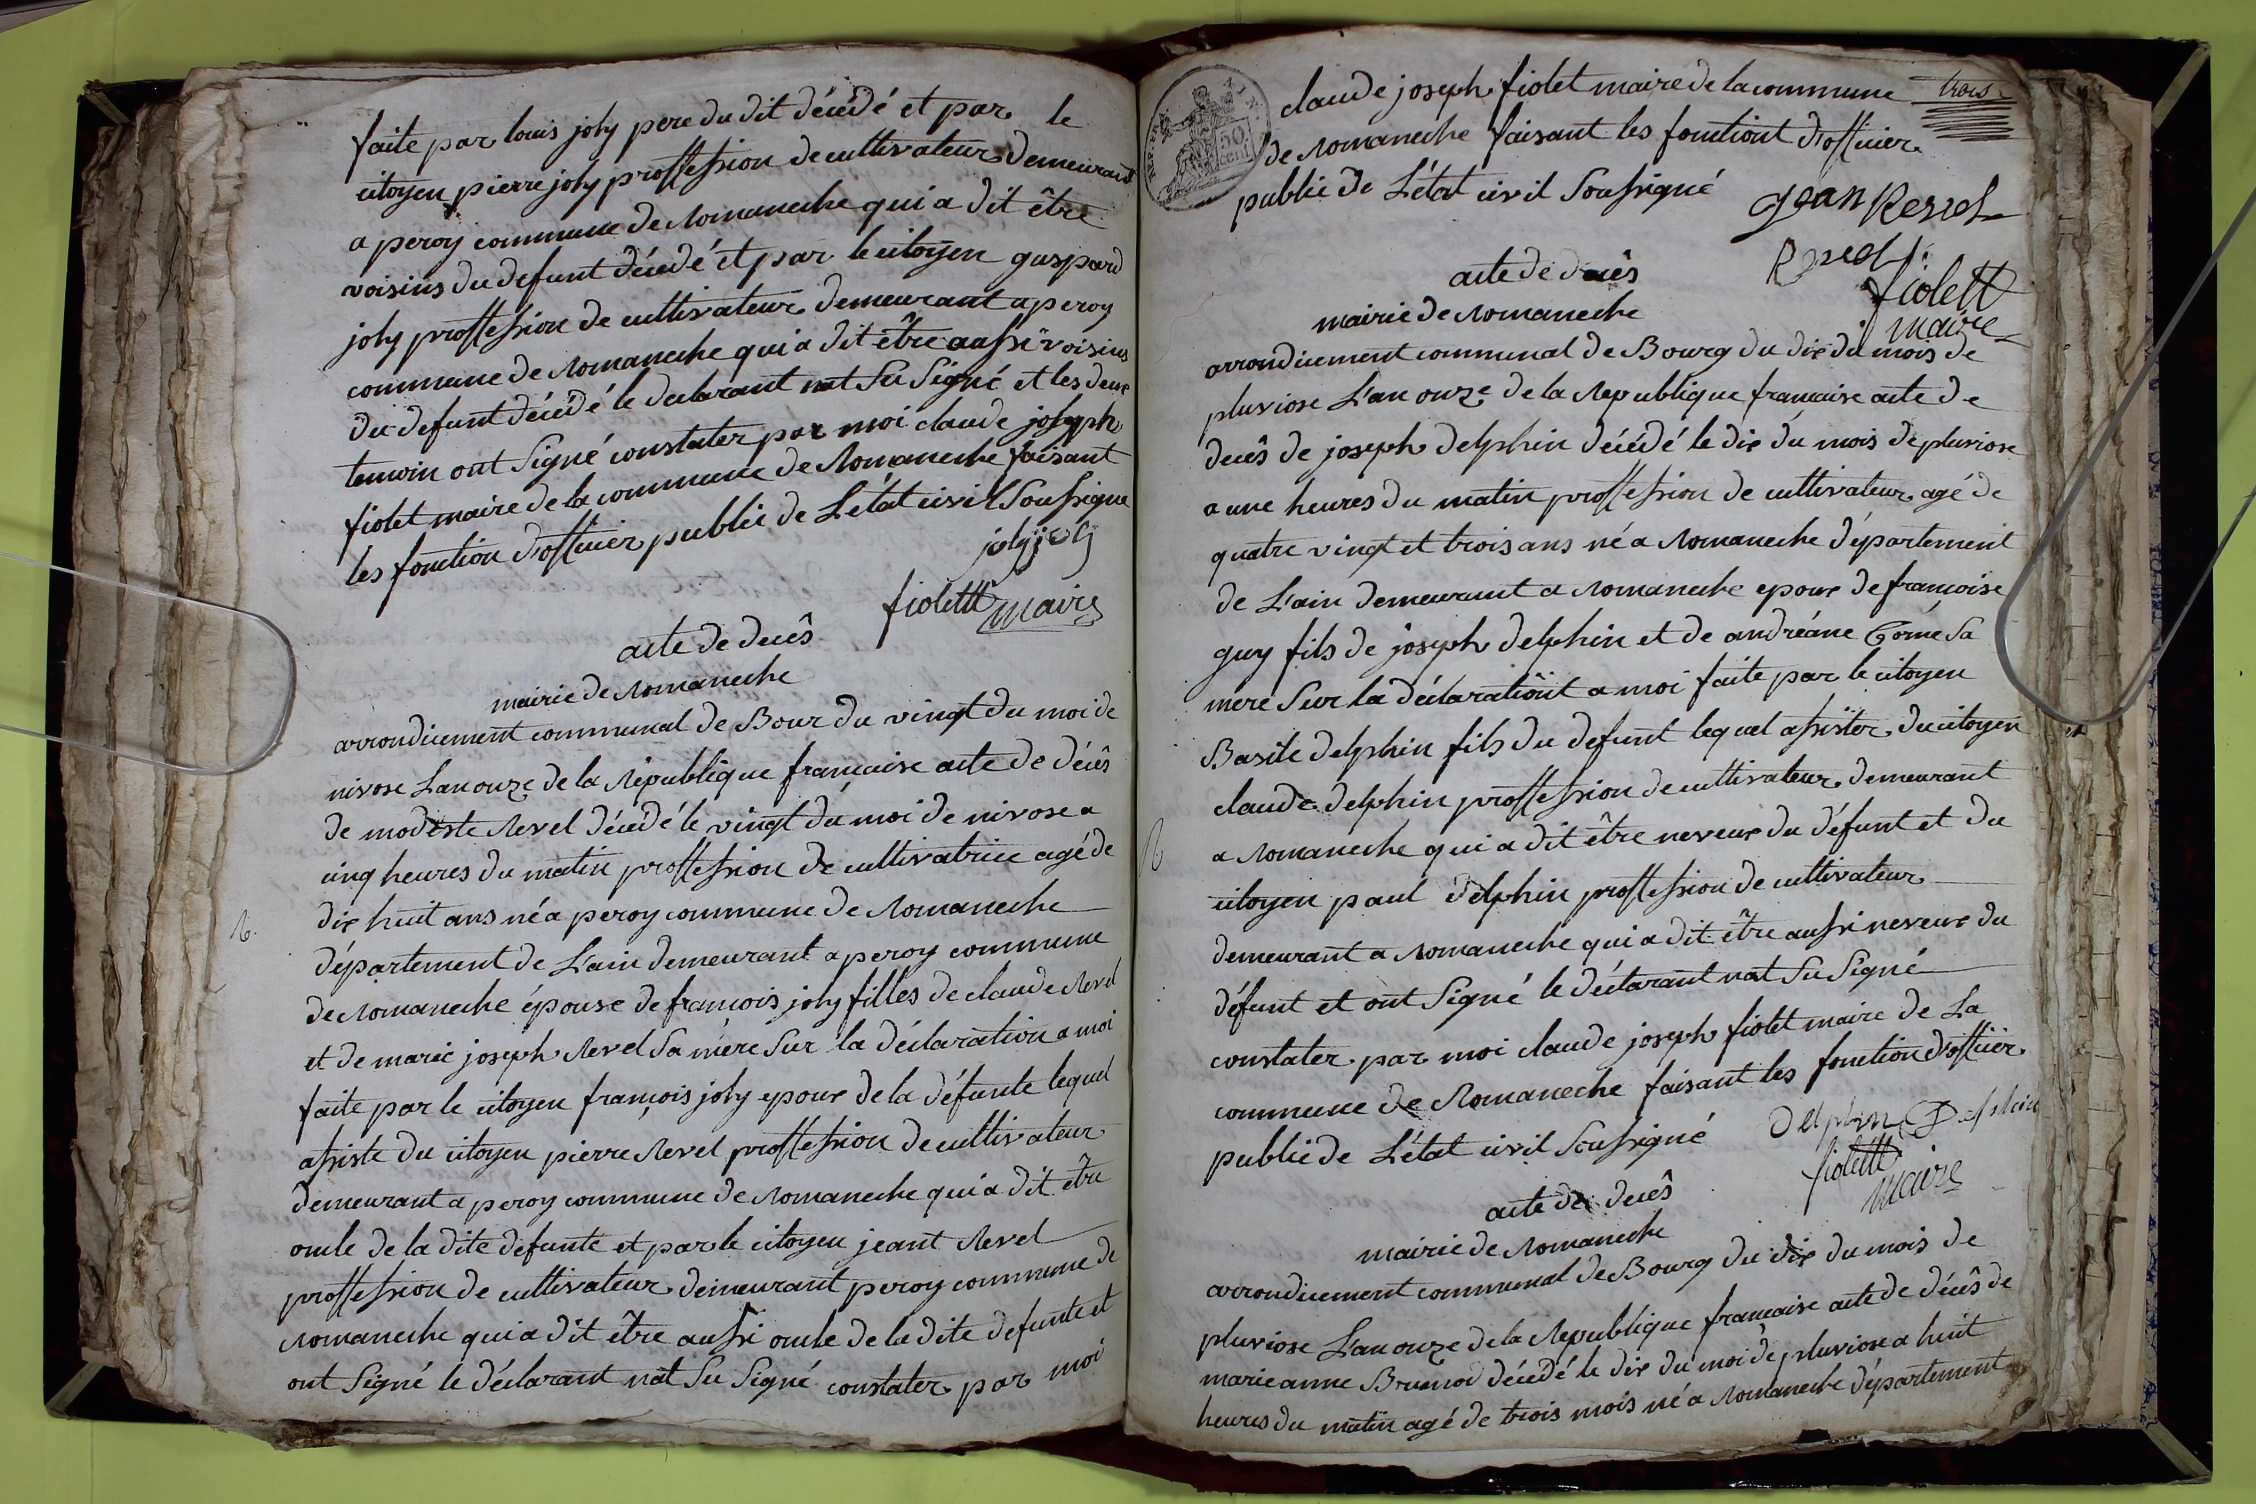 faite par louis joly pere du dit décédé et par le
citoyen pierre joly proffession de cultivateur demeurant
a peroy commune de Romaneche qui a dit être
voisins du defunt décédé et par le citoyen guspard
joly proffession de cultivateur demeurant a peroy
commune de Romaneche qui a dit être aussi voisins
du defunt décédé le declarant nat Su Signé et les deux
temoin ont Signé constater par moi claude joseph
fiolet maire de la commune de Romaneche faisant
les fonction d'officier public de L'état civil Soussigne
joly joly
fiolett maire
acte de decês
mairie de Romaneche
arrondicement communal de Bour du vingt du moi de
nivose Lan onze de la République francaise acte de décês
de modeste Revel décédé le vingt du moi de nivose a
cinq heures du matin proffession de cultivatrice agé de
dix huit ans né a peroy commune de Romaneche
département de L'ain demeurant a peroy commune
de Romaneche épouse de francois joly filles de claude Revel
et de marie joseph Revel Sa mère Sur la déclaration a moi
faite par le citoyen françois joly epoux de la défunte lequel
assiste du citoyen pierre Revel proffession de cultivateur
demeurant a peroy commune de Romaneche qui a dit être
oncle de la dite defunte et par le citoyen jeant Revel
proffession de cultivateur demeurant peroy commune de
Romaneche qui a dit être aussi oncle de la dite defunte et
ont Signé le déclarant nat Su Signé constater par moi
trois
50 cent
claude joseph fiolet maire de la commune
de Romaneche faisant les fonctiont d'officier
public de L'état civil Soussigné
Jean Revel
Revel
fiolett
maire
acte de decês
mairie de Romaneche
arrondicement communal de Bourg du dix du mois de
pluviose L'an onze de la Republique francaise acte de
decês de joseph delphin décédé le dix du mois de pluviose
a une heures du matin proffession de cultivateur agé de
quatre vingt et trois ans né a Romaneche département
de L'ain demeurant a Romaneche epoux de francoise
guy fils de joseph delphin et de andréane Sa
mere Sur la déclarationt a moi faite par le citoyen
Basile delphin fils du defunt lequel assister du citoyen
claude delphin proffession de cultivateur demeurant
a Romaneche qui a dit être neveux du défunt et du
citoyen paul delphin proffession de cultivateur
demeurant a Romaneche qui a dit être aussi neveux du
défunt et ont Signé le déclarant nat Su Signé
constater par moi claude joseph fiolet maire de La
commune de Romaneche faisant les fonction d'officier
public de L'état civil Soussigné
delphin Delphin
fiolett
maire
acte de decês
mairie de Romaneche
arrondicement communal de Bourg du dix du mois de
pluviose L'an onze de la Republique francaise acte de décês de
marie anne Brunod décédé le dix du moi de pluviose a huit
heures du matin agé de trois mois né a Romaneche département